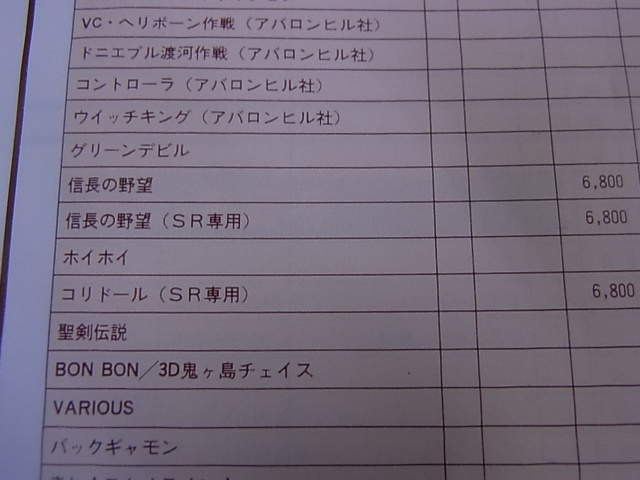 VC・ヘリボーン作戦（アバロンヒル社）
ドニエプル渡河作戦（アバロンヒル社）
コントローラ（アバロンヒル社）
ウイッチキング（アバロンヒル社）
グリーンデビル
信長の野望 6,800
信長の野望（ＳＲ専用） 6,800
ホイホイ
コリドール（ＳＲ専用） 6,800
聖剣伝説
BON BON／3D鬼ヶ島チェイス
VARIOUS
バックギャモン